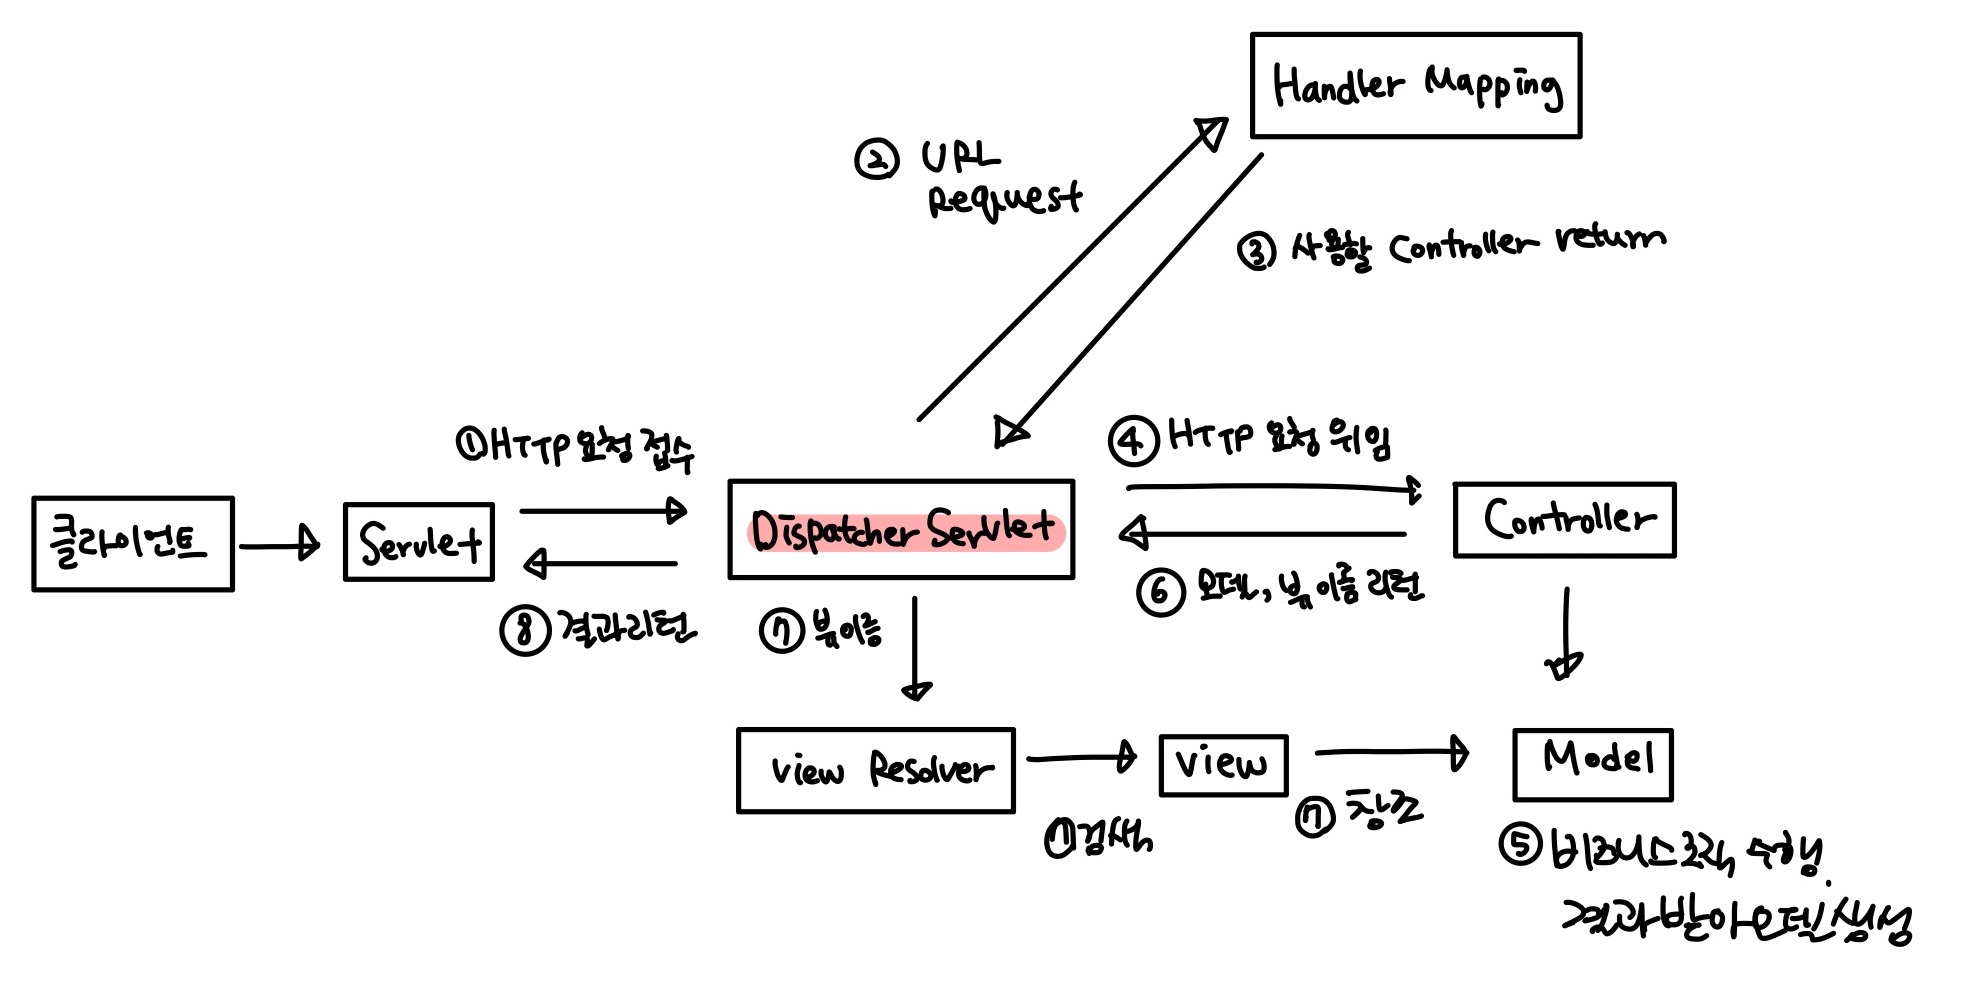 Handler Mapping
② URL
Request
③ 사용할 Controller return
① HTTP 요청 접수
④ HTTP 요청 위임
클라이언트
Servlet
Dispatcher Servlet
Controller
⑧ 결과리턴
⑦ 뷰이름
⑥ 모델, 뷰 이름 리턴
View Resolver
View
Model
⑦ 검색
⑦ 참조
⑤ 비즈니스로직 수행.
결과받아모델 생성